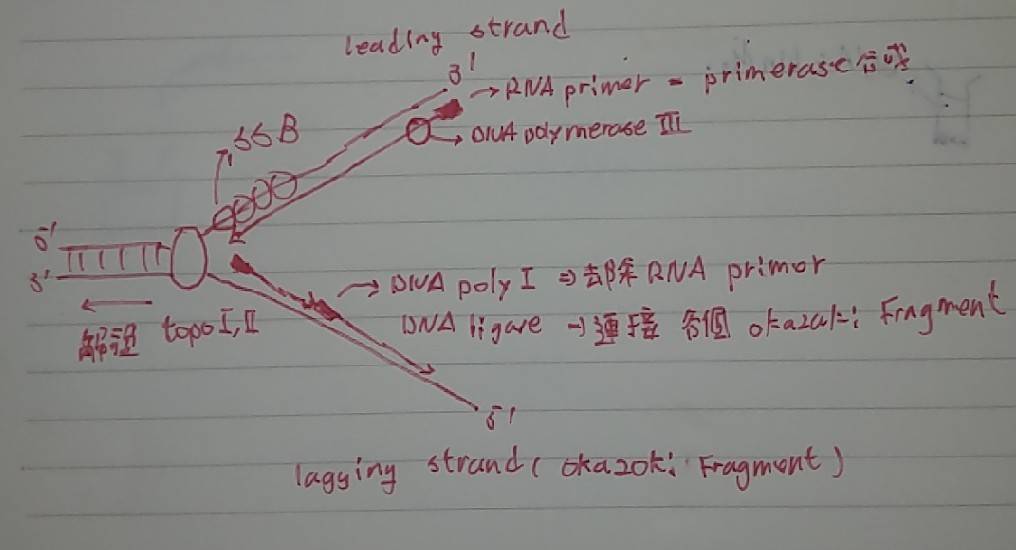 leading strand
3'
→ RNA primer = primerase合成
SSB
→ DNA polymerase III
5'
3'
→ DNA poly I ⇒ 去除 RNA primor
DNA ligase → 連接 各個 okazaki Fragment
topo I, II
5'
lagging strand ( okazoki Fragment )